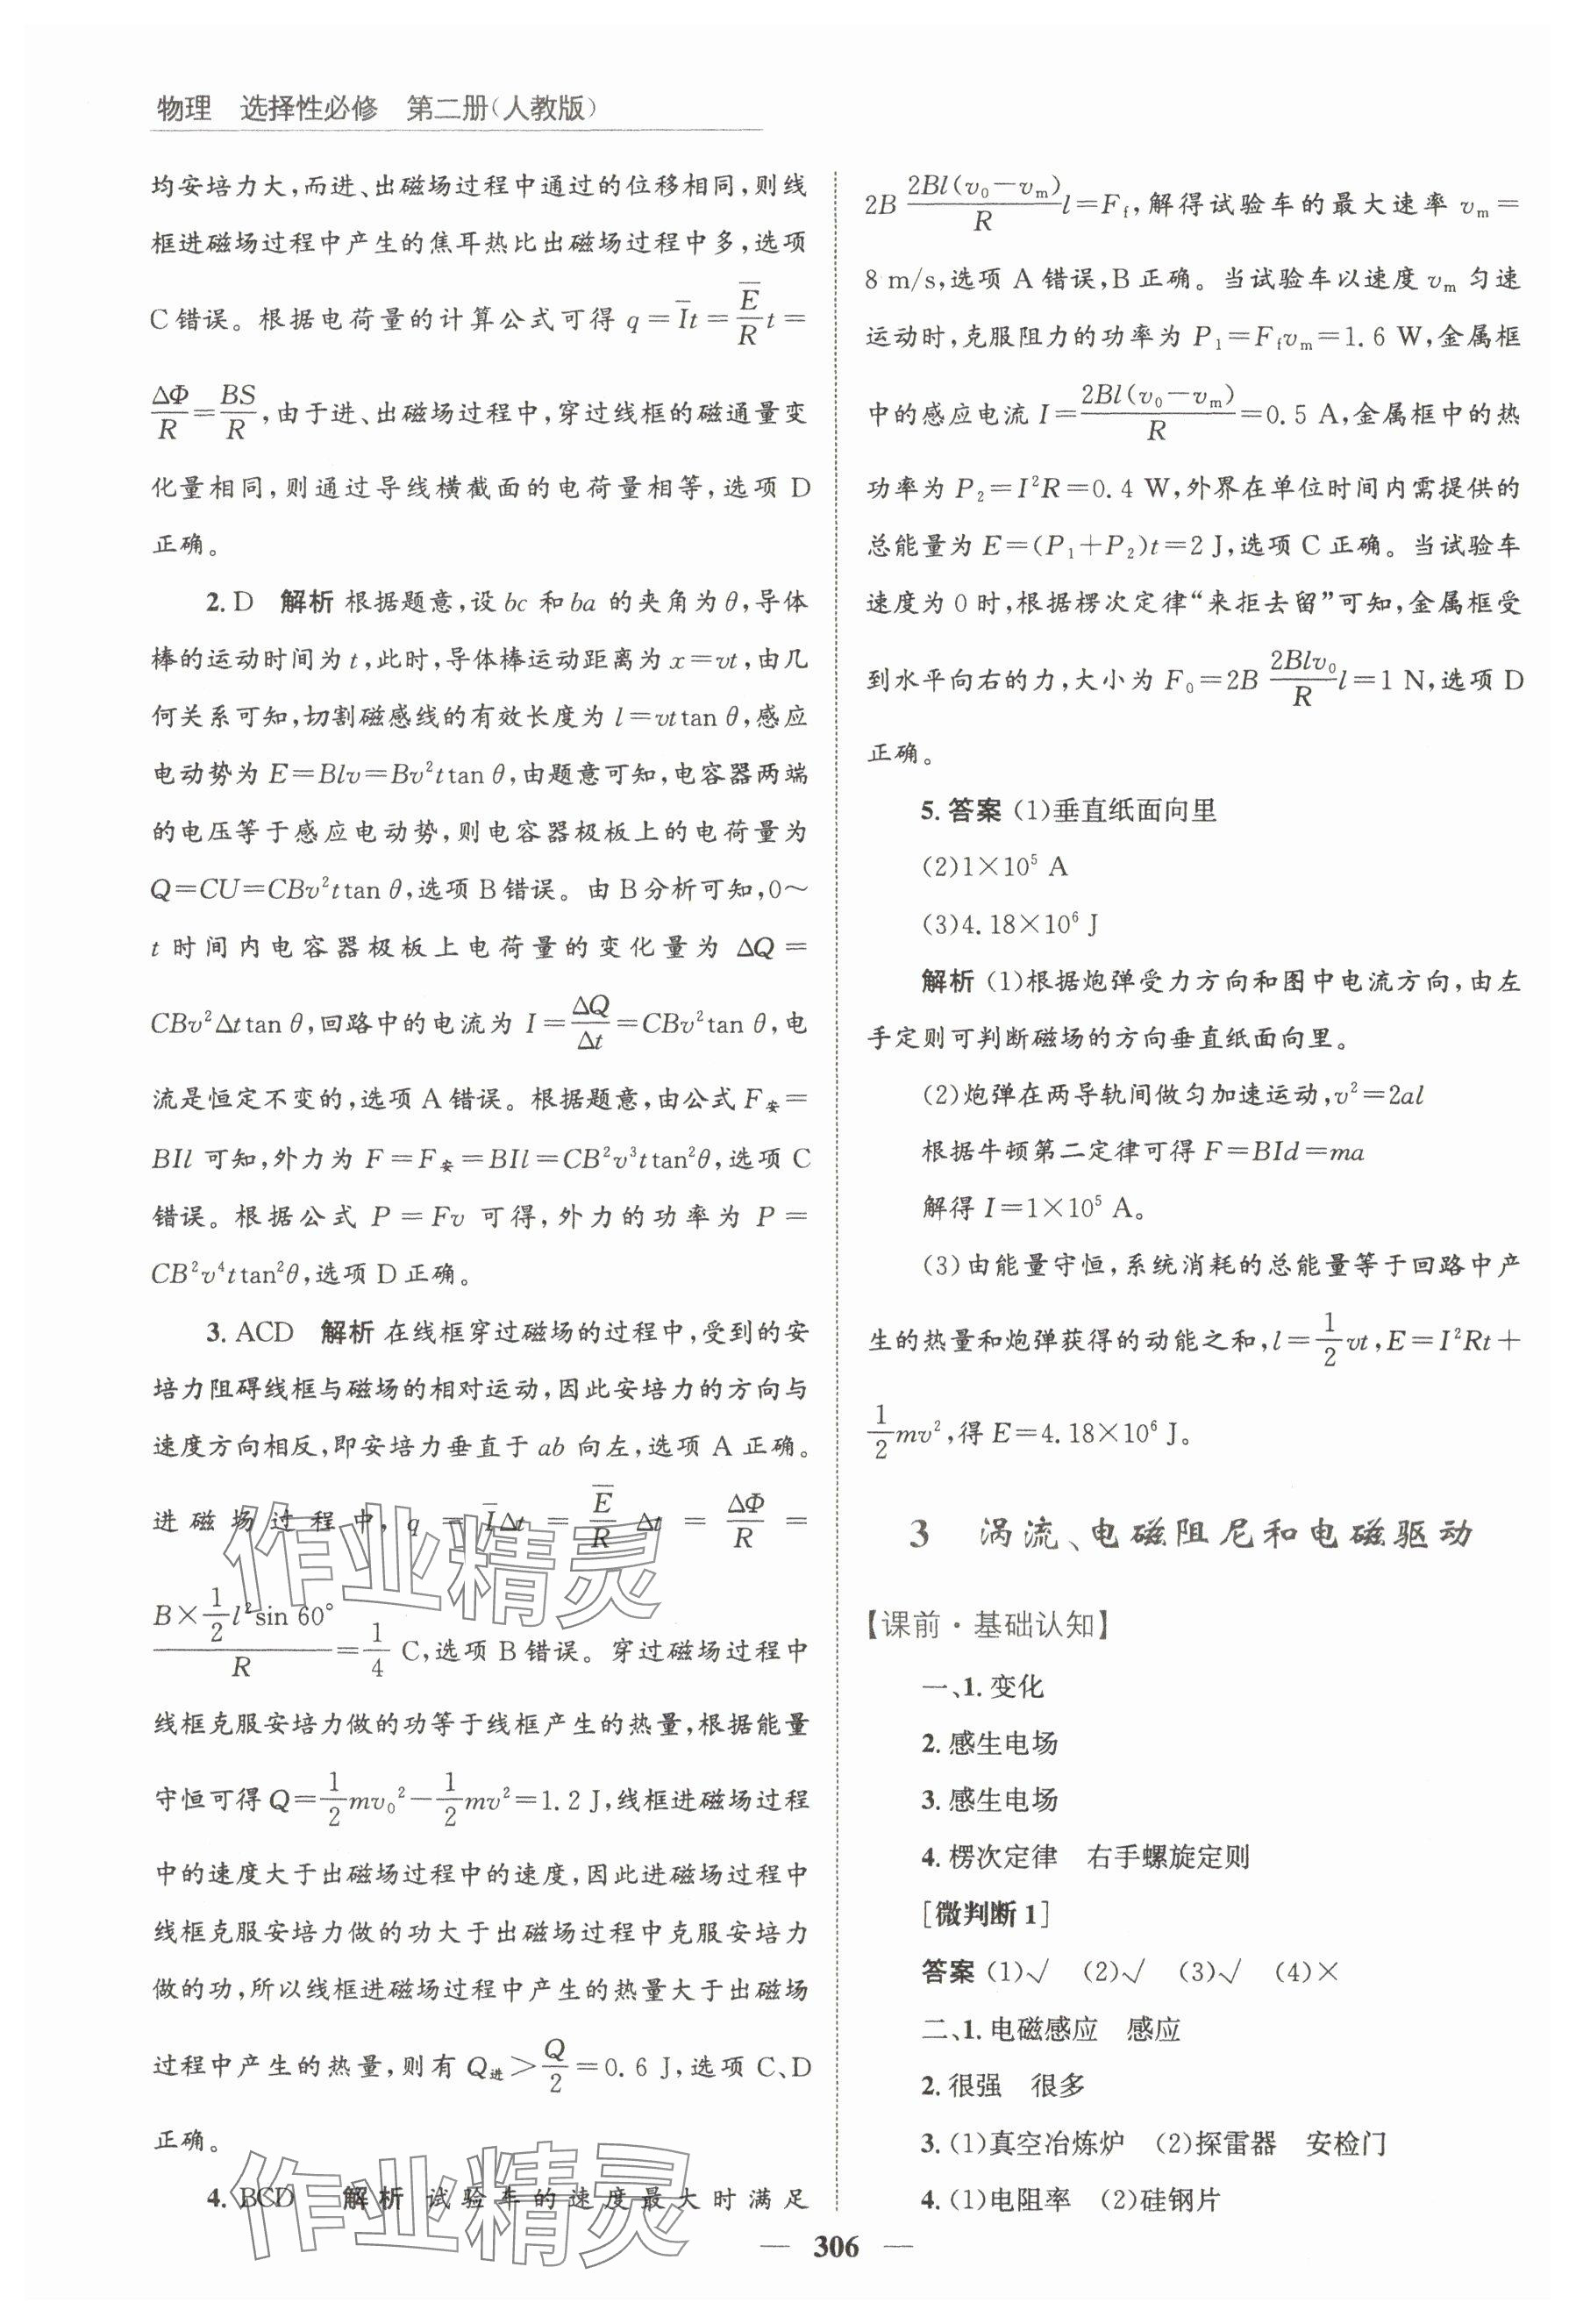 物理　选择性必修　第二册(人教版)
均安培力大,而进、出磁场过程中通过的位移相同,则线
框进磁场过程中产生的焦耳热比出磁场过程中多,选项
C错误。根据电荷量的计算公式可得 q=I̅t=E̅/R t=
ΔΦ/R=BS/R,由于进、出磁场过程中,穿过线框的磁通量变
化量相同,则通过导线横截面的电荷量相等,选项 D
正确。
2. D　解析 根据题意,设 bc 和 ba 的夹角为 θ,导体
棒的运动时间为 t,此时,导体棒运动距离为 x=vt,由几
何关系可知,切割磁感线的有效长度为 l=vttan θ,感应
电动势为 E=Blv=Bv²ttan θ,由题意可知,电容器两端
的电压等于感应电动势,则电容器极板上的电荷量为
Q=CU=CBv²ttan θ,选项B错误。由B分析可知,0～
t 时间内电容器极板上电荷量的变化量为 ΔQ=
CBv²Δttan θ,回路中的电流为 I=ΔQ/Δt=CBv²tan θ,电
流是恒定不变的,选项A错误。根据题意,由公式F安=
BIl 可知,外力为 F=F安=BIl=CB²v³ttan²θ,选项 C
错误。根据公式 P=Fv 可得,外力的功率为 P=
CB²v⁴ttan²θ,选项D正确。
3. ACD　解析 在线框穿过磁场的过程中,受到的安
培力阻碍线框与磁场的相对运动,因此安培力的方向与
速度方向相反,即安培力垂直于 ab 向左,选项 A 正确。
进磁场过程中, q=I̅Δt=E̅/R Δt=ΔΦ/R=
(B×1/2 l²sin 60°)/R=1/4 C,选项B错误。穿过磁场过程中
线框克服安培力做的功等于线框产生的热量,根据能量
守恒可得Q=1/2mv₀²-1/2mv²=1.2 J,线框进磁场过程
中的速度大于出磁场过程中的速度,因此进磁场过程中
线框克服安培力做的功大于出磁场过程中克服安培力
做的功,所以线框进磁场过程中产生的热量大于出磁场
过程中产生的热量,则有 Q进>Q/2=0.6 J,选项 C、D
正确。
4. BCD　解析 试验车的速度最大时满足
2B 2Bl(v₀-vm)/R l=Ff,解得试验车的最大速率 vm=
8 m/s,选项 A 错误,B正确。当试验车以速度 vm 匀速
运动时,克服阻力的功率为 P₁=Ffvm=1.6 W,金属框
中的感应电流 I=2Bl(v₀-vm)/R=0.5 A,金属框中的热
功率为 P₂=I²R=0.4 W,外界在单位时间内需提供的
总能量为 E=(P₁+P₂)t=2 J,选项C正确。当试验车
速度为 0 时,根据楞次定律“来拒去留”可知,金属框受
到水平向右的力,大小为 F₀=2B 2Blv₀/R l=1 N,选项 D
正确。
5. 答案 (1)垂直纸面向里
(2)1×10⁵ A
(3)4.18×10⁶ J
解析 (1)根据炮弹受力方向和图中电流方向,由左
手定则可判断磁场的方向垂直纸面向里。
(2)炮弹在两导轨间做匀加速运动,v²=2al
根据牛顿第二定律可得F=BId=ma
解得 I=1×10⁵ A。
(3)由能量守恒,系统消耗的总能量等于回路中产
生的热量和炮弹获得的动能之和,l=1/2 vt,E=I²Rt+
1/2mv²,得 E=4.18×10⁶ J。
3　涡流、电磁阻尼和电磁驱动
【课前·基础认知】
一、1. 变化
2. 感生电场
3. 感生电场
4. 楞次定律　右手螺旋定则
[微判断1]
答案 (1)√　(2)√　(3)√　(4)×
二、1. 电磁感应　感应
2. 很强　很多
3. (1)真空冶炼炉　(2)探雷器　安检门
4. (1)电阻率　(2)硅钢片
作业精灵
作业精灵
— 306 —